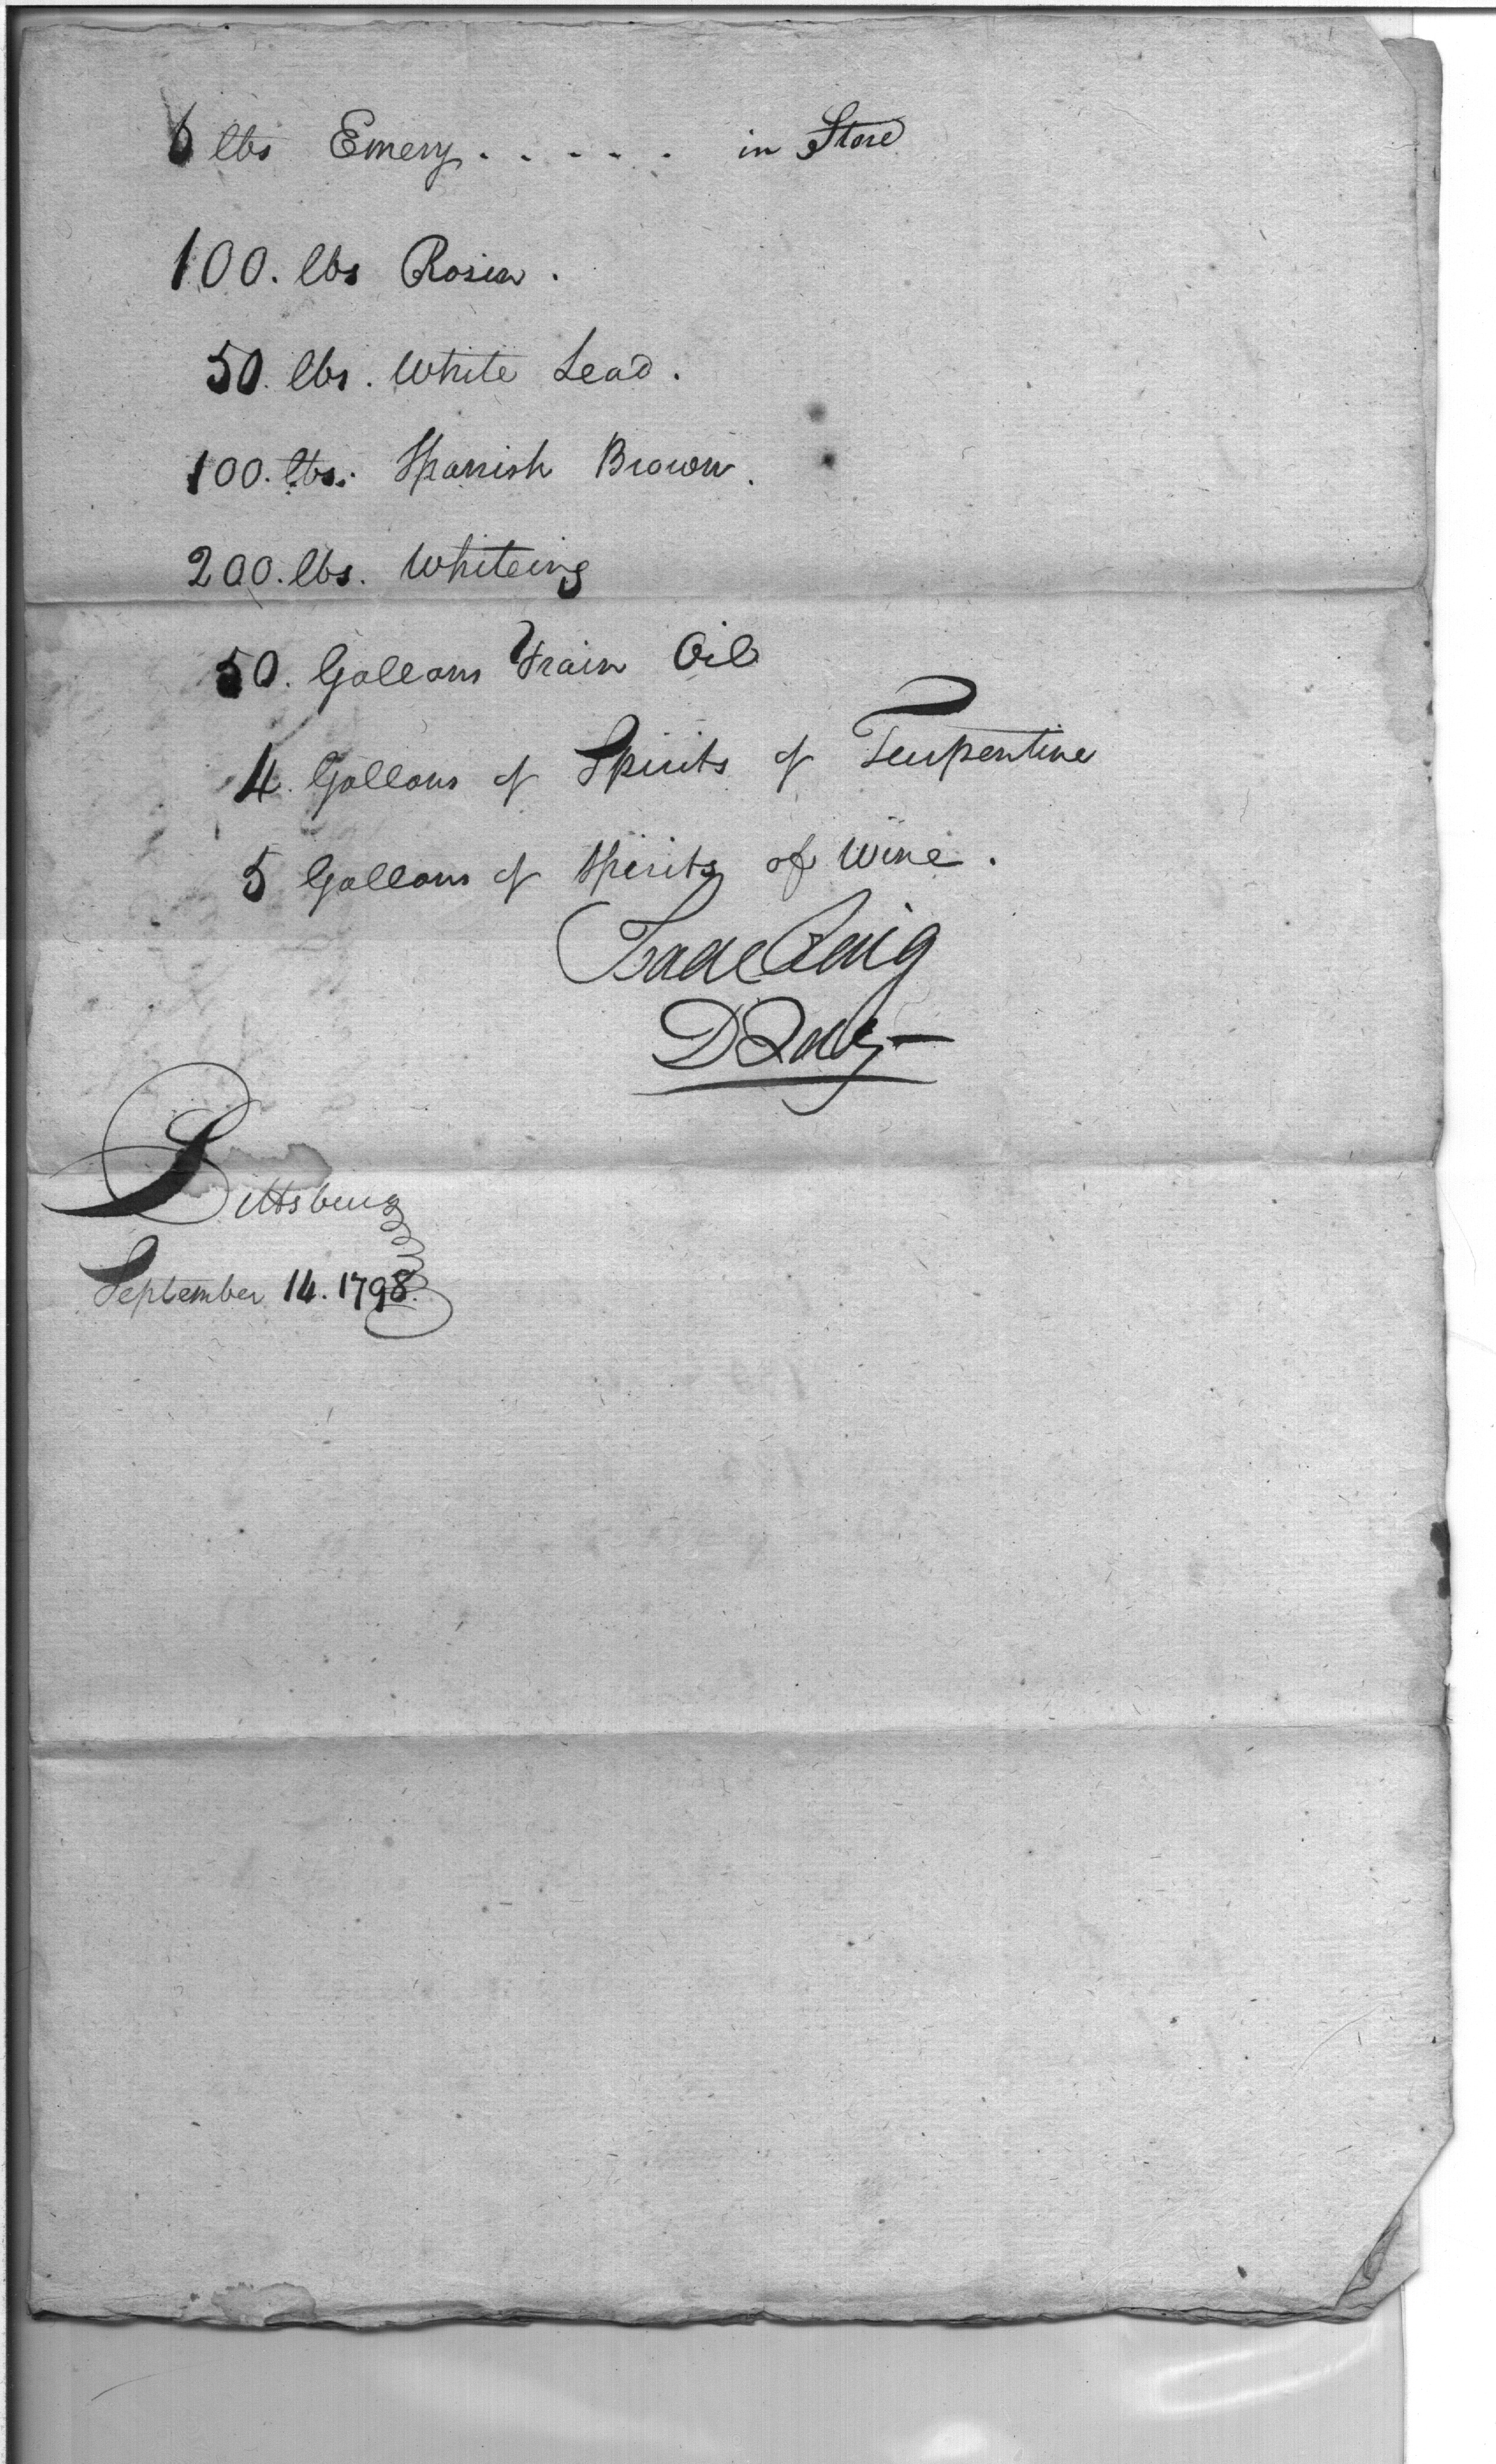 6 lbs Emery . . . . . . in Store
100. lbs Rosin .
50. lbs. White Lead .
100. lbs. Spanish Brown .
200. lbs. Whiteing
50. Gallons Train Oil
4. Gallons of Spirits of Turpentine
5 Gallons of Spirits of Wine .
Isaac Craig
DQMG
Pittsburg
September 14. 1798.